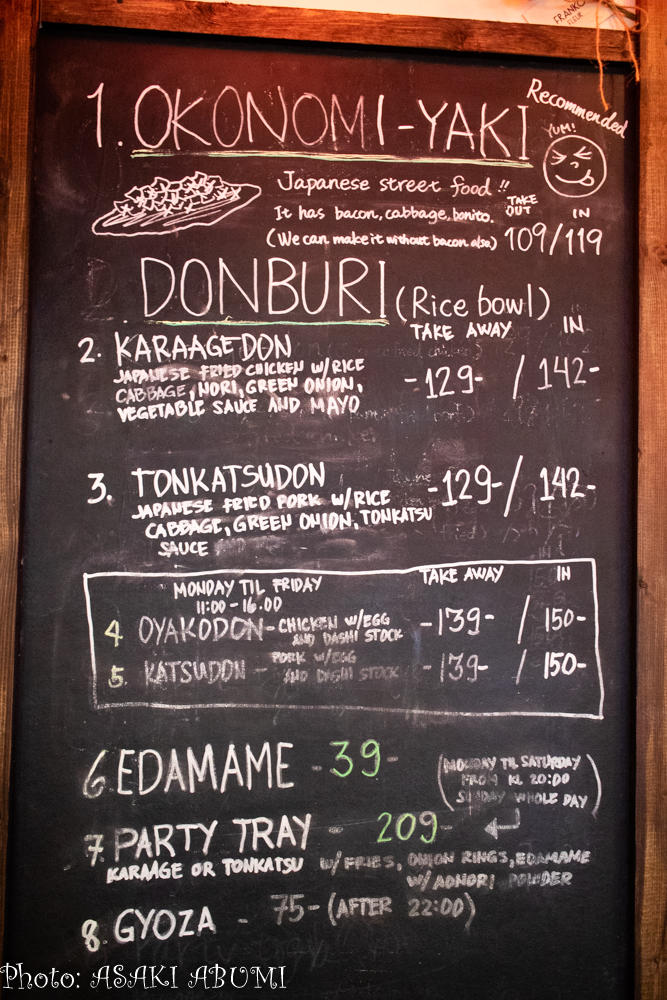 FRANKO
1. OKONOMI-YAKI
Recommended
YUM!
Japanese street food!!
It has bacon, cabbage, bonito.
(We can make it without bacon also)
TAKE OUT IN
109/119
DONBURI (Rice bowl)
TAKE AWAY IN
2. KARAAGEDON
JAPANESE FRIED CHICKEN W/RICE
CABBAGE, NORI, GREEN ONION,
VEGETABLE SAUCE AND MAYO
-129- / 142-
3. TONKATSUDON
JAPANESE FRIED PORK W/RICE
CABBAGE, GREEN ONION, TONKATSU
SAUCE
-129- / 142-
MONDAY TIL FRIDAY
11:00-16.00
TAKE AWAY IN
4 OYAKODON - CHICKEN W/EGG
AND DASHI STOCK
-139- / 150-
5. KATSUDON - PORK W/EGG
AND DASHI STOCK
-139- / 150-
6. EDAMAME - 39-
(MONDAY TIL SATURDAY
FROM KL 20:00
SUNDAY WHOLE DAY)
7. PARTY TRAY - 209-
KARAAGE OR TONKATSU W/FRIES, ONION RINGS, EDAMAME
W/AONORI POWDER
8. GYOZA - 75- (AFTER 22:00)
Photo: ASAKI ABUMI